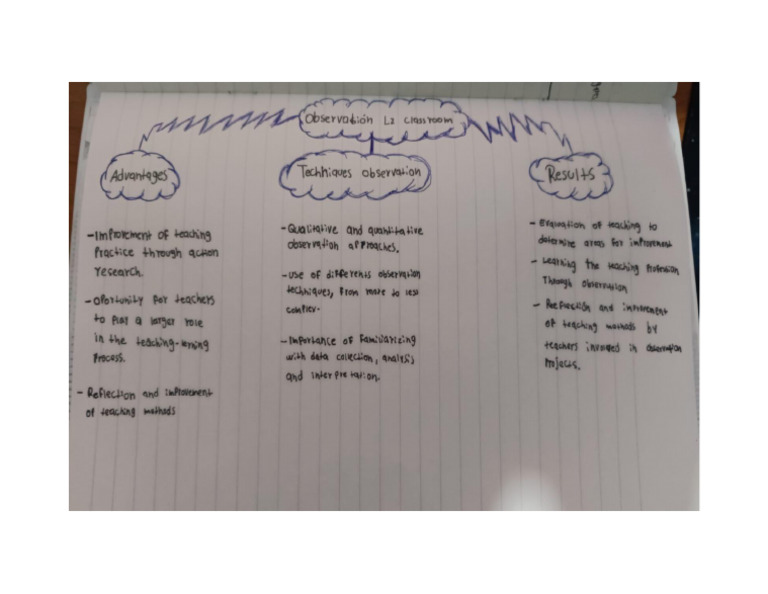 Observation L2 classroom
Advantages
-Improvement of teaching
Practice through action
research.
-Oportunity for teachers
to play a larger role
in the teaching-lerning
Process.
-Reflection and improvement
of teaching methods
Techniques observation
-Qualitative and quantitative
observation approaches.
-use of differents observation
techniques, from more to less
complex.
-Importance of familiarizing
with data collection, analysis
and interpretation.
Results
- Evaluation of teaching to
determine areas for improvement
- Learning the teaching Profession
Through observation
- Reflection and improvement
of teaching methods by
teachers involved in observation
Projects.